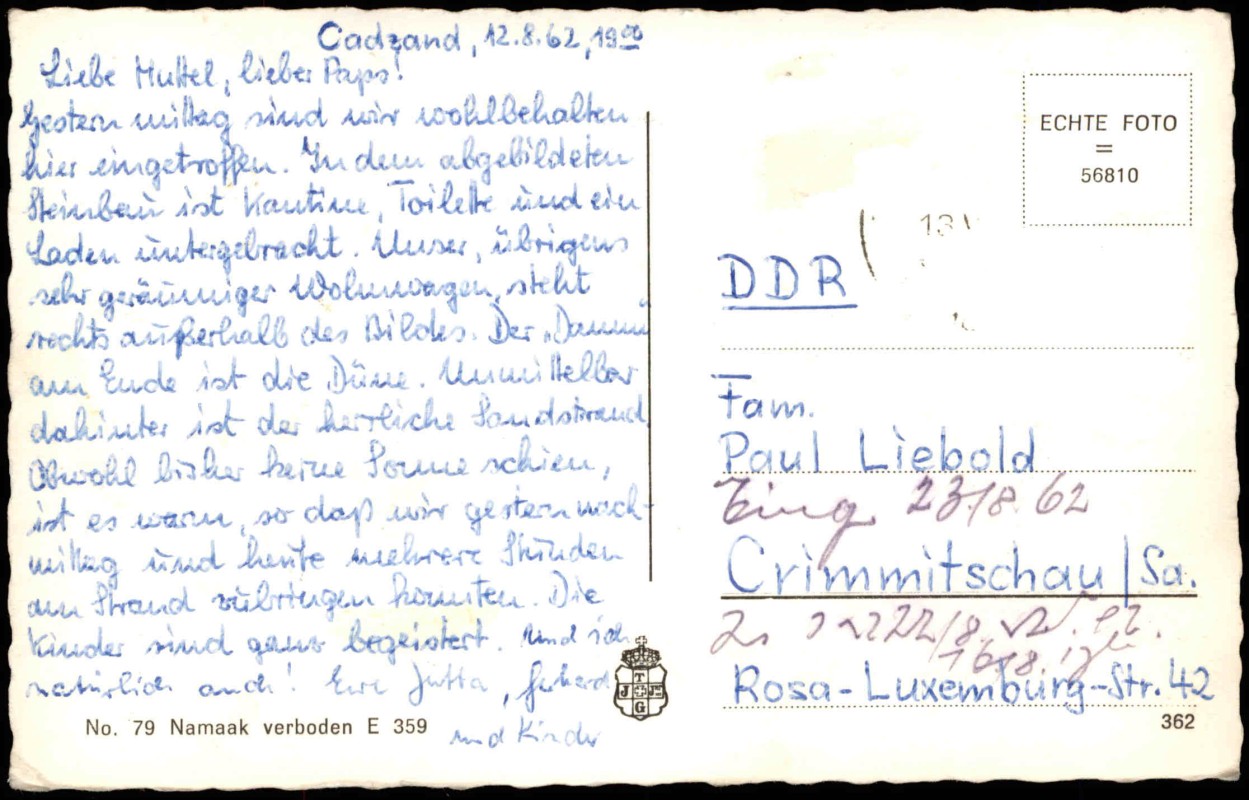 Cadzand, 12.8.62, 19 00
Liebe Muttel, lieber Paps!
Gestern mittag sind wir wohlbehalten
hier eingetroffen. In dem abgebildeten
Steinbau ist Kantine, Toilette und ein
Laden untergebracht. Unser, übrigens
sehr geräumiger Wohnwagen, steht
rechts außerhalb des Bildes. Der „Damm"
am Ende ist die Düne. Unmittelbar
dahinter ist der herrliche Sandstrand.
Obwohl bisher keine Sonne schien,
ist es warm, so daß wir gestern nach-
mittag und heute mehrere Stunden
am Strand zubringen konnten. Die
Kinder sind ganz begeistert. Und ich
natürlich auch! Eure Jutta, Gerhard
und Kinder
No. 79 Namaak verboden E 359
T
J JR
G
ECHTE FOTO
=
56810
13
DDR
Fam.
Paul Liebold
Eing. 23/8.62
Crimmitschau/Sa.
22/8.
16/8.
Rosa-Luxemburg-Str. 42
362